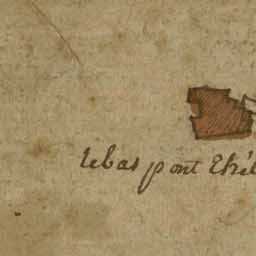 le bas pont Thé